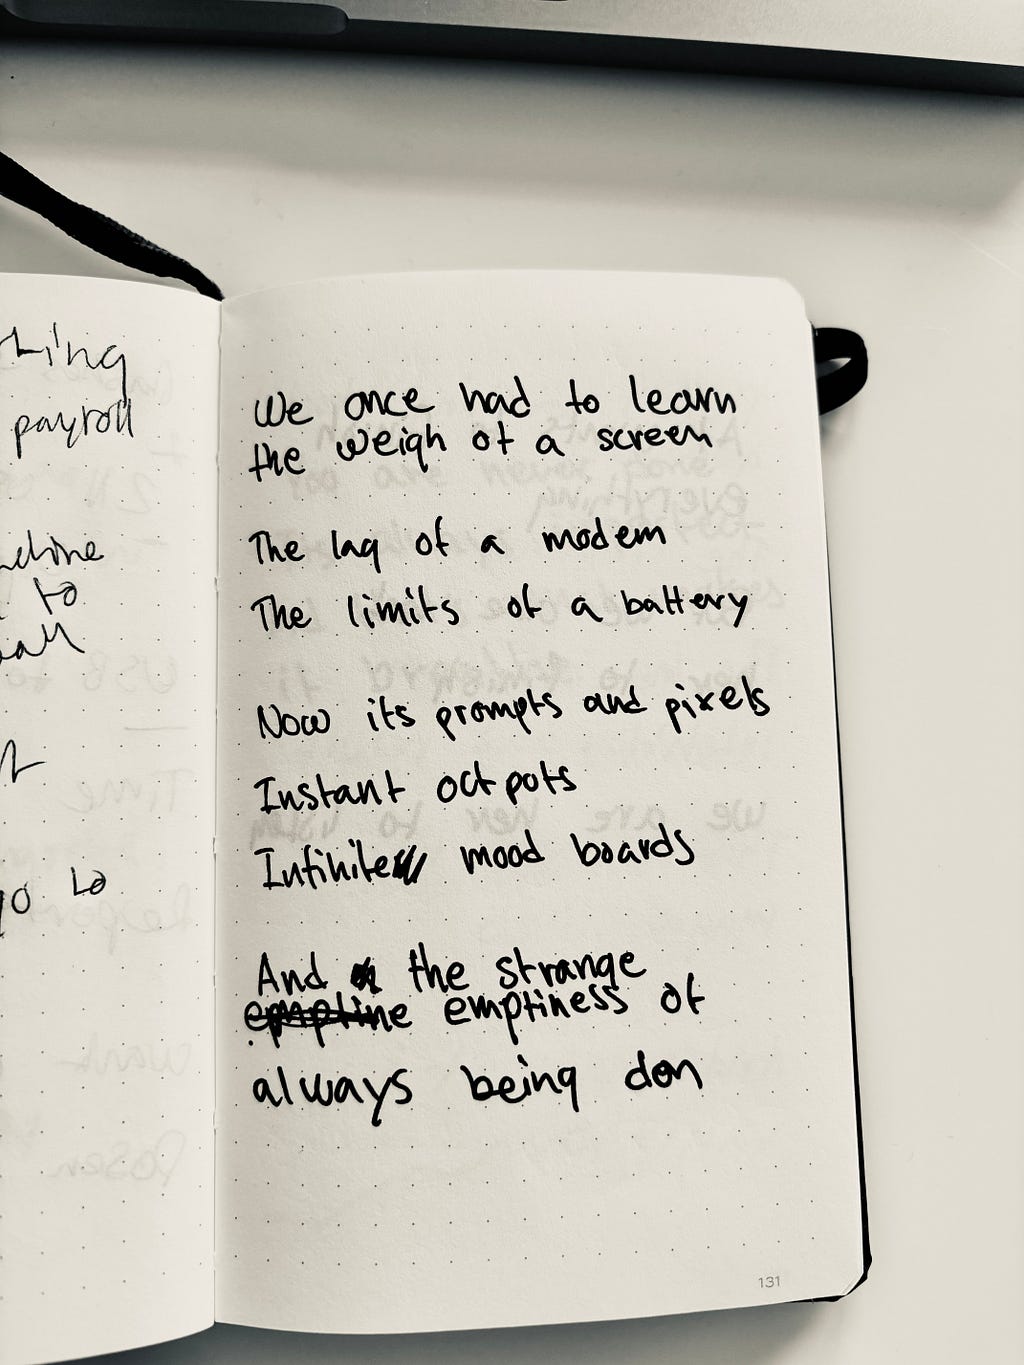 payroll
to
to
We once had to learn
the weigh of a screen
The lag of a modem
The limits of a battery
Now its prompts and pixels
Instant octpots
Infinite mood boards
And the strange
emptiness of
always being don
131